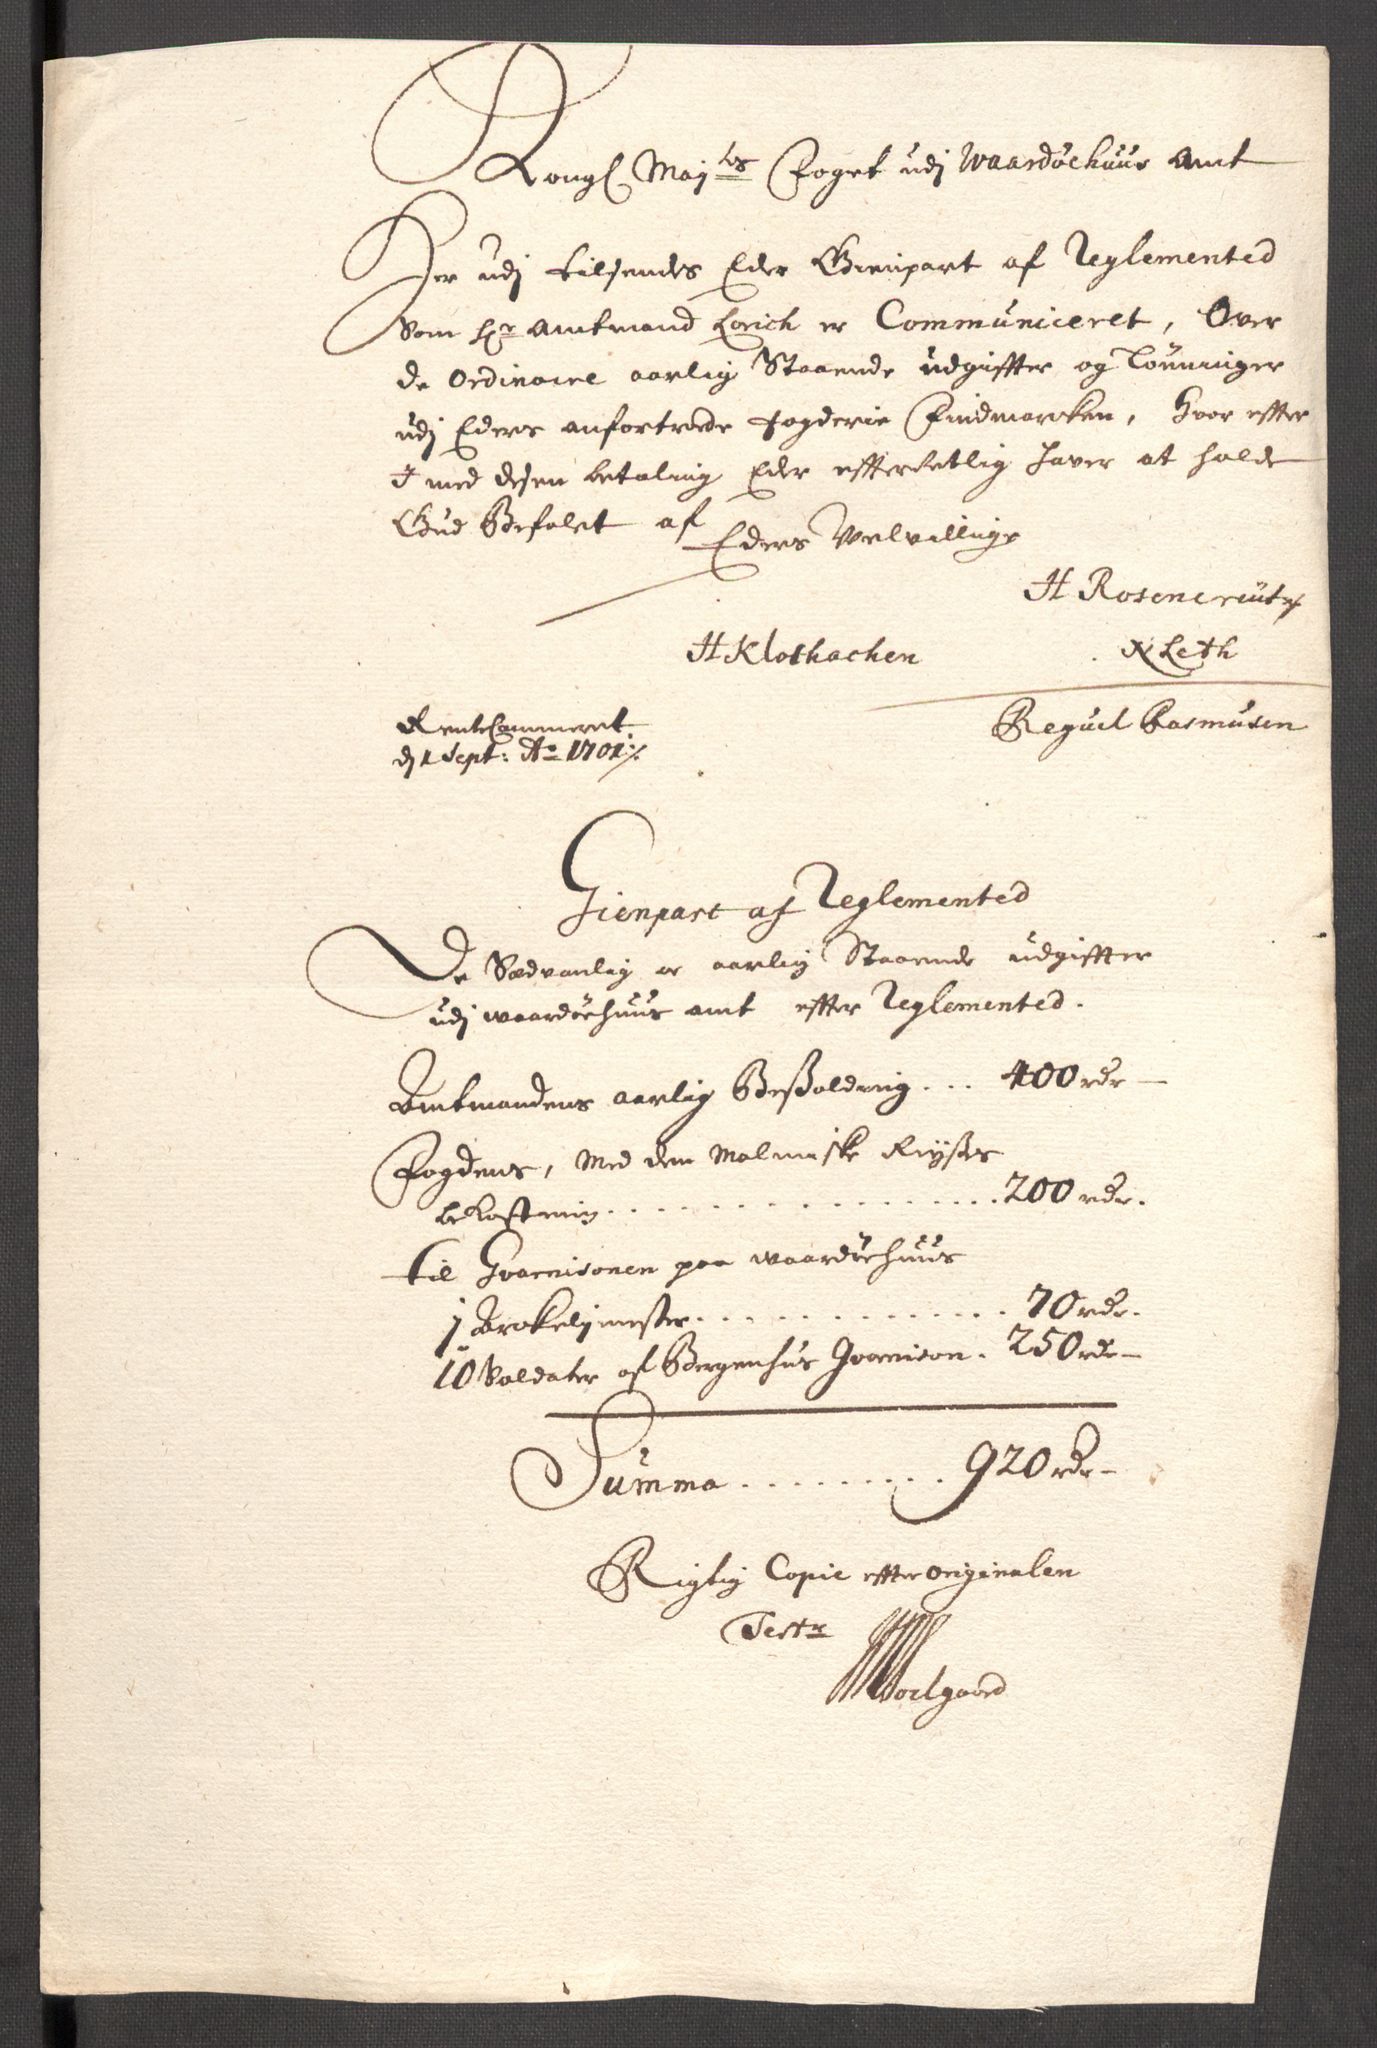 Kongl Maj:ts Foget udj Waardøehuus Amt
Her udj tilsendes Eder Gienpart af Reglemented
Som hr Amtmand Lorich er Communiceret, Over
de Ordinaire aarlig Staaende udgiffter og Lønninger
udj Eders anfortroede fogderie Findmarcken, hvor effter
I med desen betaling Eder effterretlig haver at holde
Gud Befalet af
Eders Velvillige
H Rosencreütz
H Klothachen
N Leth
Reguel Rasmusen
RenteCammeret
dj 1 Sept: Ao 1701 ./.
Gienpart af Reglemented
De Sædvanlig er aarlig Staaende udgiffter
udj waardøehuus amt effter Reglemented.
Amtmandens aarlig Beßolding ... 400 rdr
Fogdens, Med den Malmiske Reyßes
bekostning ................ 200 rdr.
til Gvarnisonen paa waardøehuus
1 Arkelijmester ............. 70 rdr.
10 Soldater af Bergenhus Gvarnison. 250 rdr
Summa ......... 920 rdr
Rigtig Copie effter Originalen
Test: